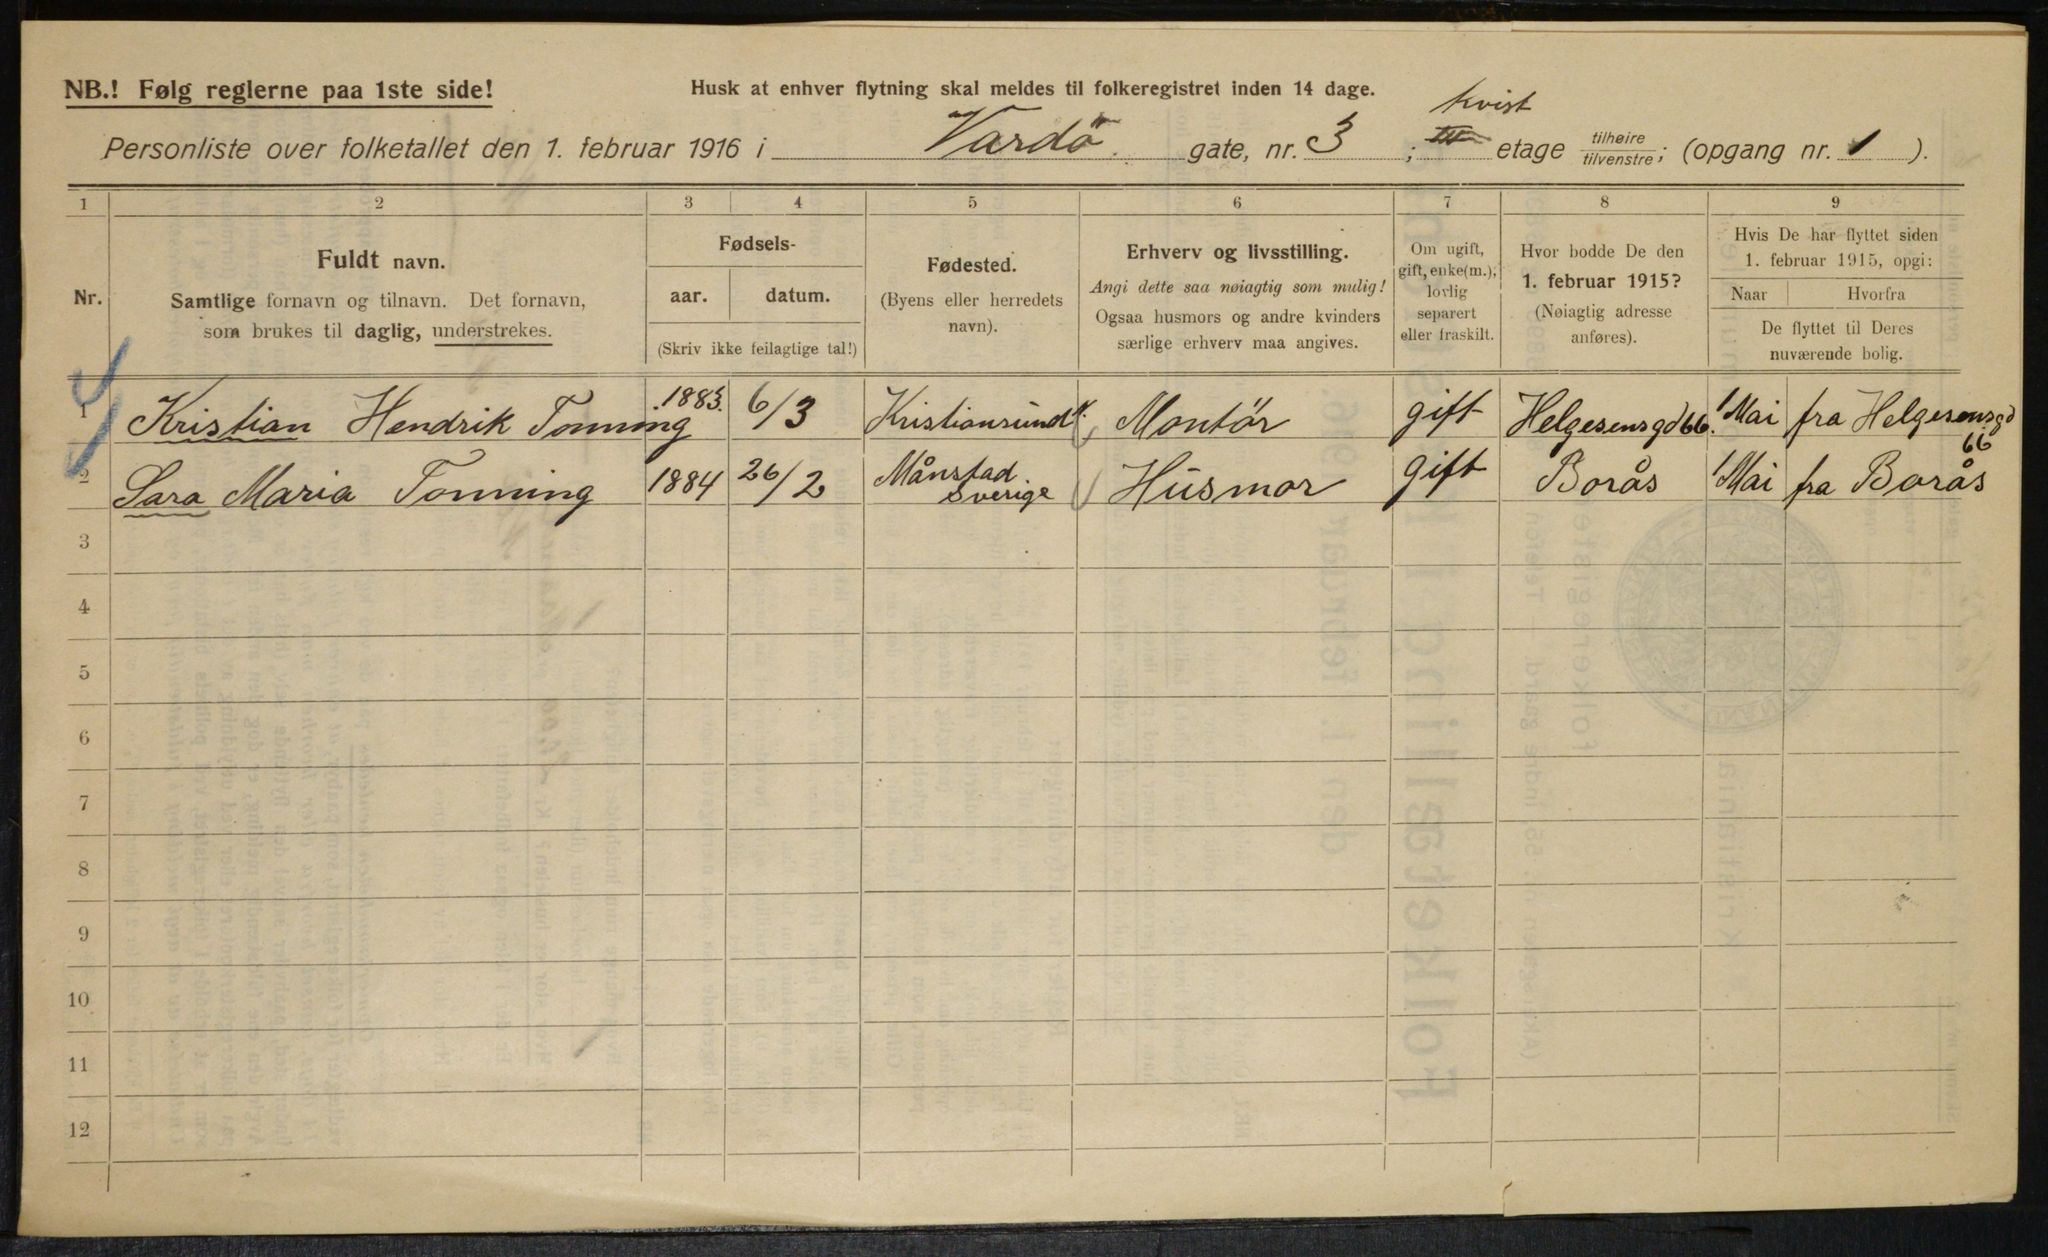 NB.! Følg reglerne paa 1ste side!
Husk at enhver flytning skal meldes til folkeregistret inden 14 dage.
kvist
Personliste over folketallet den 1. februar 1916 i Vardö gate, nr. 3 ; III etage tilhøire/tilvenstre; (opgang nr. 1 ).
1 2 3 4 5 6 7 8 9
Nr.
Fuldt navn.
Samtlige fornavn og tilnavn. Det fornavn,
som brukes til daglig, understrekes.
Fødsels-
aar. datum.
(Skriv ikke feilagtige tal!)
Fødested.
(Byens eller herredets
navn).
Erhverv og livsstilling.
Angi dette saa nøiagtig som mulig!
Ogsaa husmors og andre kvinders
særlige erhverv maa angives.
Om ugift,
gift, enke(m.),
lovlig
separert
eller fraskilt.
Hvor bodde De den
1. februar 1915?
(Nøiagtig adresse
anføres).
Hvis De har flyttet siden
1. februar 1915, opgi:
Naar Hvorfra
De flyttet til Deres
nuværende bolig.
1 Kristian Hendrik Tonning 1883. 6/3 Kristiansund N. Montör gift Helgesensgd 66. 1 Mai fra Helgesensgd 66
2 Sara Maria Tonning 1884 26/2 Månstad Sverige Husmor gift Borås 1 Mai fra Borås
3
4
5
6
7
8
9
10
11
12